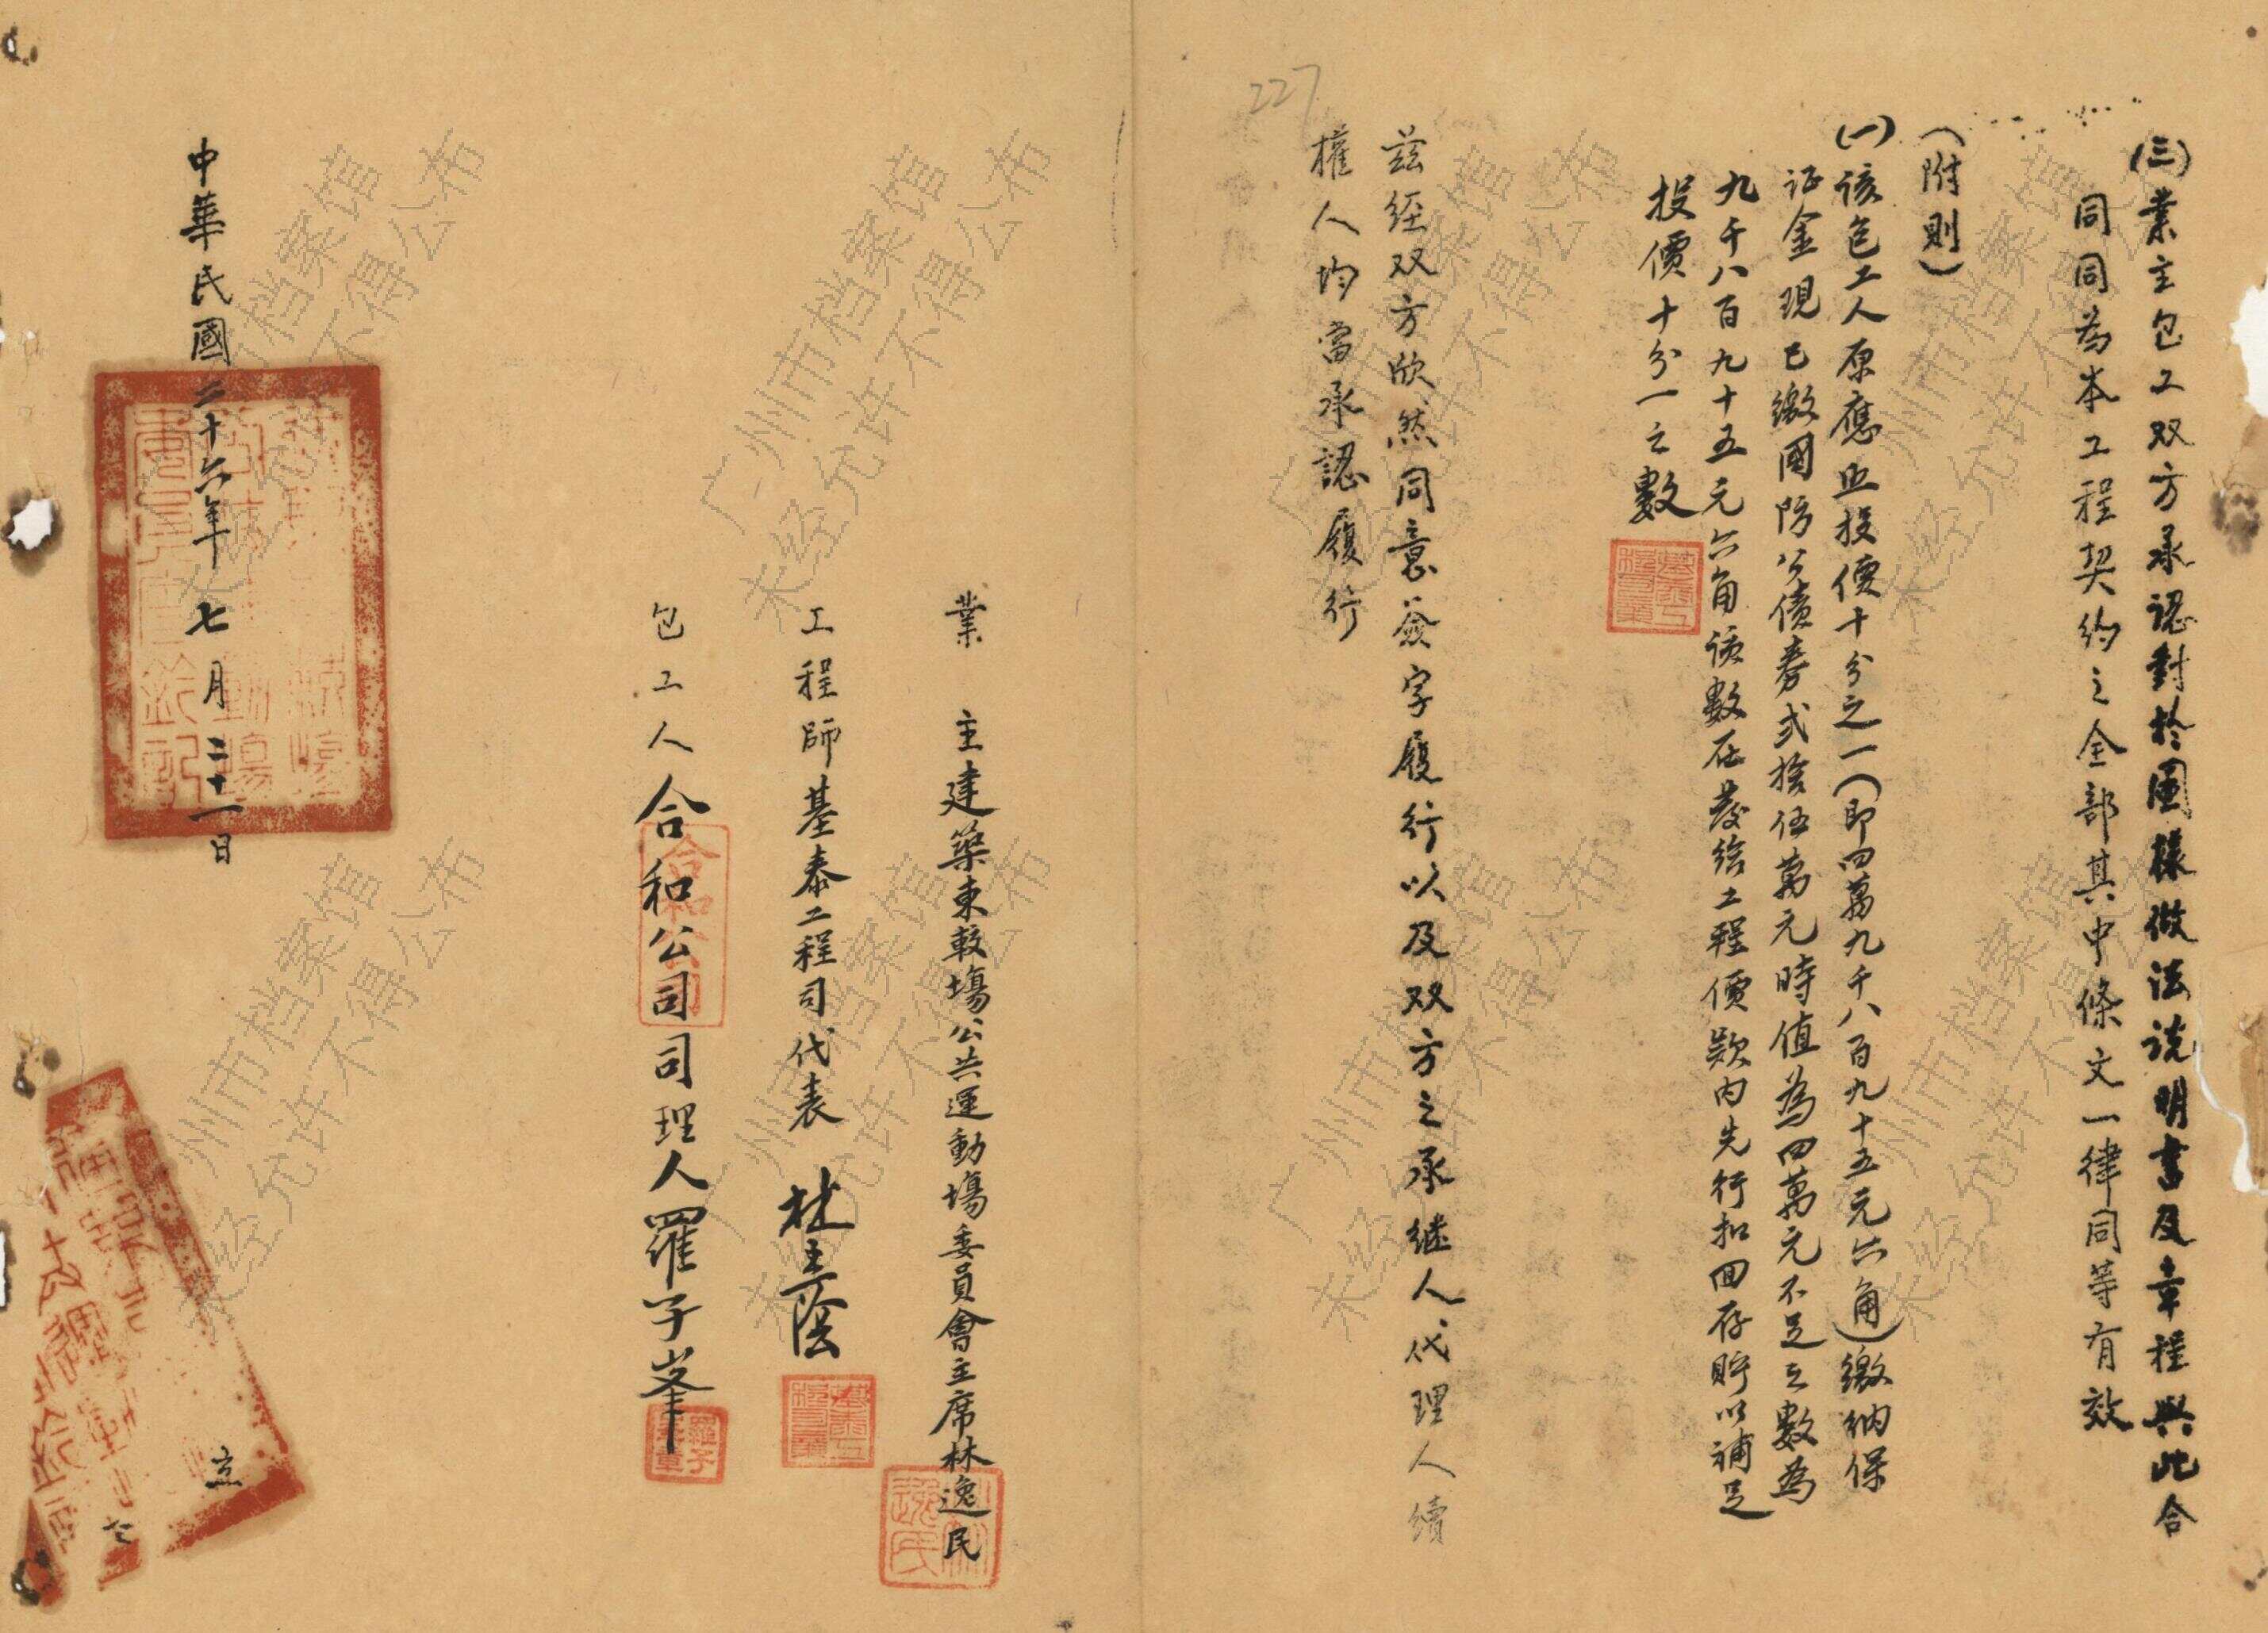 (三)業主包工双方承認對於圖樣做法說明書及章程與此合
同同為本工程契約之全部其中條文一律同等有效
(附則)
(一)該包工人原應照投價十分之一(即四萬九千八百九十五元六角)繳納保
証金現已繳國防公債券弍拾伍萬元時值為四萬元不足之數為
九千八百九十五元六角該數在發給工程價款內先行扣回存貯以補足
投價十分一之數
茲經双方欣然同意簽字履行以及双方之承継人代理人續
權人均當承認履行
227
業 主建築東較場公共運動場委員會主席林逸民
工程師基泰工程司代表
包工人合和公司司理人羅子峯
合和公司
羅子峯章
林逸民
中華民國二十六年七月二十一日
立
广州市档案馆
未经允许不得公布